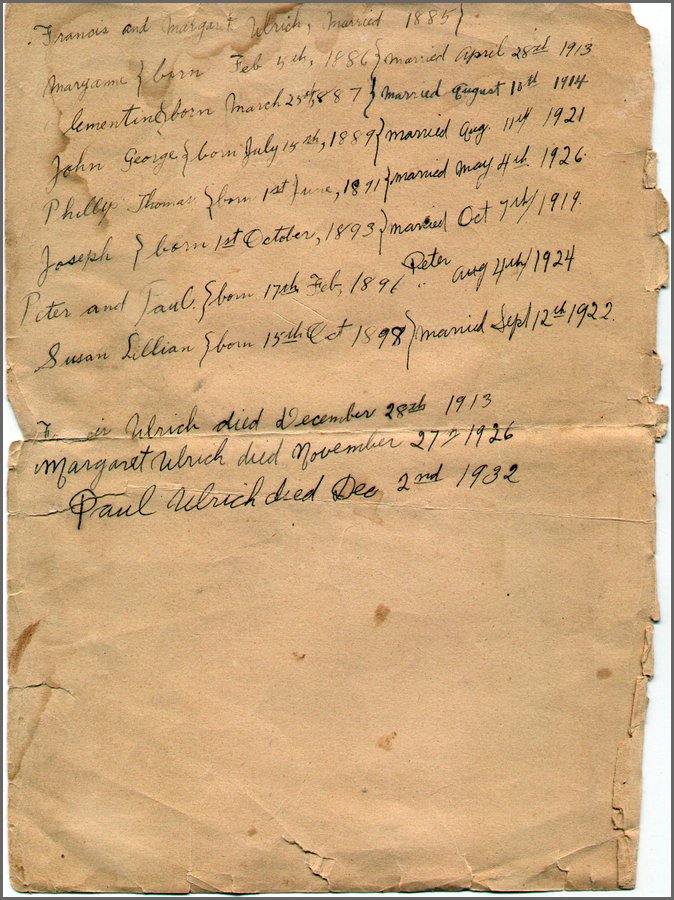 Francis and Margaret Ulrich, Married 1885}
Maryanne {born Feb 5th, 1886} married April 28th 1913
lementine {born March 25th, 1887} married August 10th 1914
John George {born July 15th, 1889} married Aug. 11th 1921
Phillip Thomas {born 1st June, 1891} married May 4th. 1926.
Joseph } born 1st October, 1893} married Oct 7th/1919.
Peter and Paul. {born 17th Feb, 1896 Peter " Aug 4th/1924
Susan Lillian {born 15th Oct 1898} married Sept 12th 1922.
Ulrich died December 28th 1913
Margaret Ulrich died November 27th 1926
Paul Ulrich died Dec 2nd 1932